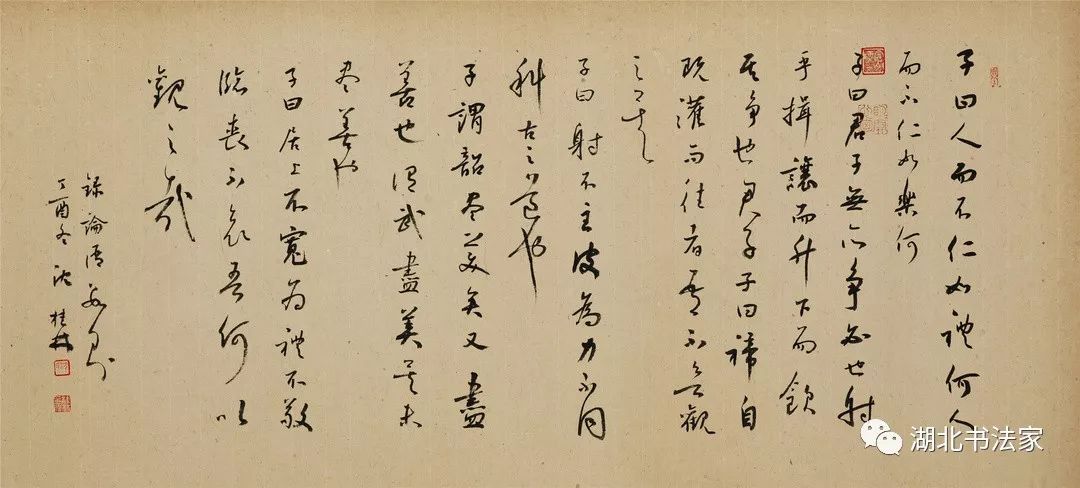 子曰人而不仁如禮何人
而不仁如樂何
子曰君子無所争必也射
乎揖讓而升下而飲
其争也君子子曰禘自
既灌而往者吾不欲觀
之矣
子曰射不主皮為力不同
科古之道也
子謂韶尽美矣又盡
善也謂武盡美矣未
尽善也
子曰居上不寬為禮不敬
臨喪不哀吾何以
觀之哉
録論語数則
丁酉冬沈桂林
湖北书法家